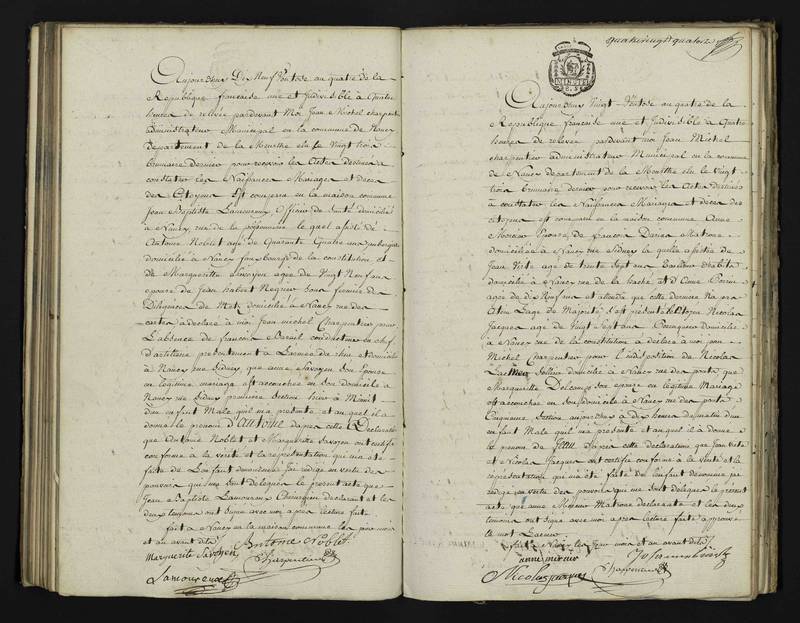 Aujourdhuy Dix Neuf Ventose an quatre de la
Republique francaise une et Indivisible à Quatre
heures de relevée pardevant Moi Jean Michel charpentier
administrateur Municipal en la commune de Nancy
Departement de la Meurthe elu le Vingt trois
brumaire dernier pour recevoir les Actes destinés a
constater les Naissances Mariages et deces
des Citoyens Est comparu en la maison commune
Jean Baptiste Lamoureux Officier de Santé domicilié
à Nancy rue de la poissonnerie le quel assisté de
Antoine Noblet agé de Quarante Quatre ans aubergiste
domicilié à Nancy faubourg de la constitution et
de Marguerite Savoyen agée de Vingt Neuf ans
epouse de Jean hubert sous fermier des
Diligences de Metz domicilié à Nancy rue des
a déclaré à moi Jean michel Charpentier pour
L'absence de francois conducteur en chef
d'artillerie presentement a L'armée du rhin et domicilié
à Nancy rue Sidney que anne Savoyen Son Epouse
en legitime mariage est accouchée en son domicile à
Nancy rue Sidney premiere Section hier à Minuit
d'un enfant Male qui m'a presenté et au quel il a
donné le prenom d'Antoine dapres cette Declaration
que Antoine Noblet et Marguerite Savoyen ont certifié
conforme à la vérité et la representation qui m'a été
faite de L'enfant denommé J'ai redigé en vertu des
pouvoirs qui me sont délégués le present acte que
Jean Baptiste Lamoureux Chirurgien declarant et les
deux temoins ont signé avec moi apres lecture faite
fait à Nancy en la maison commune les jour mois
et an avant dits
Antoine Noblet
Marguerite Savoyen
Charpentier
Lamoureux
quatrevingt quatorze
Aujourdhuy Vingt Ventose an quatre de la
Republique francaise une et Indivisible à Quatre
heures de relevée pardevant moi Jean Michel
charpentier administrateur Municipal en la commune
de Nancy departement de la Meurthe elu le Vingt
trois brumaire dernier pour recevoir les Actes destinés
a constater les Naissances Mariages et deces des
citoyens est comparu en la maison commune Anne
Epouse de francois Matrone
domiciliée à Nancy rue Sidney la quelle assistée de
Jean agé de trente Sept ans
domicilié à Nancy rue de la hache et d'Anne
agée de dix Neuf ans et attendu que cette derniere n'a pas
atteint L'age de Majorité s'est presenté le Citoyen Nicolas
Jacques agé de Vingt Sept ans domicilié
à Nancy rue de la constitution a déclaré à moi Jean
Michel Charpentier pour L'indisposition de Nicolas
Sellier domicilié à Nancy rue des ponts que
Marguerite Son epouse en legitime Mariage
est accouchée en Son domicile à Nancy rue des ponts
Cinquieme Section aujourdhuy à dix heures du matin d'un
enfant Male qui m'a presenté et auquel il a donné
le prenom de Jean Dapres cette declaration que Jean
et Nicolas Jacques ont certifié conforme à la verité et la
representation qui m'a été faite de L'enfant denommé j'ai
redigé en vertu des pouvoirs qui me sont délégués le present
acte que anne Matrone declarante et les deux
temoins ont signé avec moi apres lecture faite approuvé
le mot
faite à Nancy les Jour mois et an avant dits
Nicolas Jacques
Charpentier